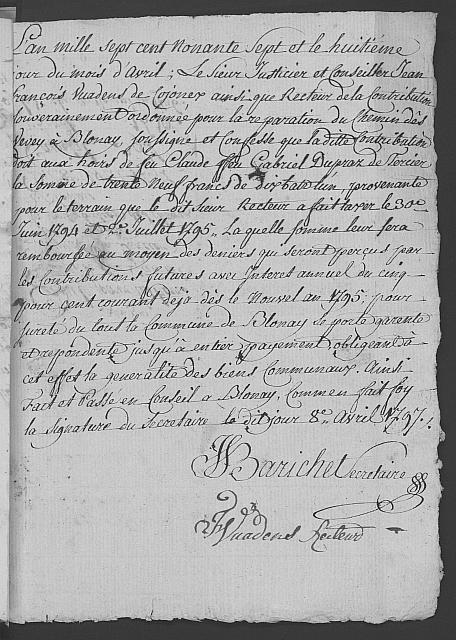 L'an mille Sept cent Nonante Sept et le huitiéme
jour du mois d'Avril; Le Sieur Justicier et Conseiller Jean
François Vuadens de ainsi que Recteur de la Contribution
Souverainement ordonnée pour la reparation du Chemin dès
Vevey à Blonay, soussigne et Confesse que la ditte Contribution
doit aux hoirs de feu Claude ffeu Gabriel Dupraz de Tercier
la Somme de trente Neuf francs de dix batz l'un, provenante
pour le terrain que le dit Sieur Recteur a fait taxer le 30e
Juin 1794 et 2e Juillet 1795. La quelle somme leur sera
remboursée au moyen des deniers qui seront perçus par
les Contributions futures avec Interet annuel du cinq
pour cent courant deja dès le Nouvel an 1795; pour
sureté du tout la Commune de Blonay se porte garente
et respondente jusqu'à entier payement obligeant à
cet effet la generalité des biens Communaux. Ainsi
Fait et Passé en Conseil à Blonay, Comme en fait foy
la Signature du Secretaire le dit jour 8e Avril 1797.
Barichet Secretaire
Vuadens Recteur